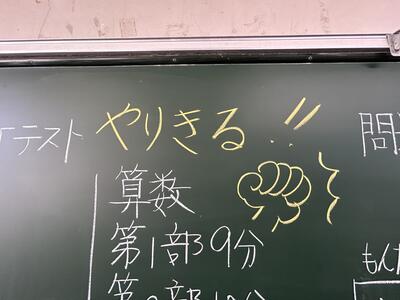 テスト やりきる!! 問
算数
第1部 9分
もんだ
第2部